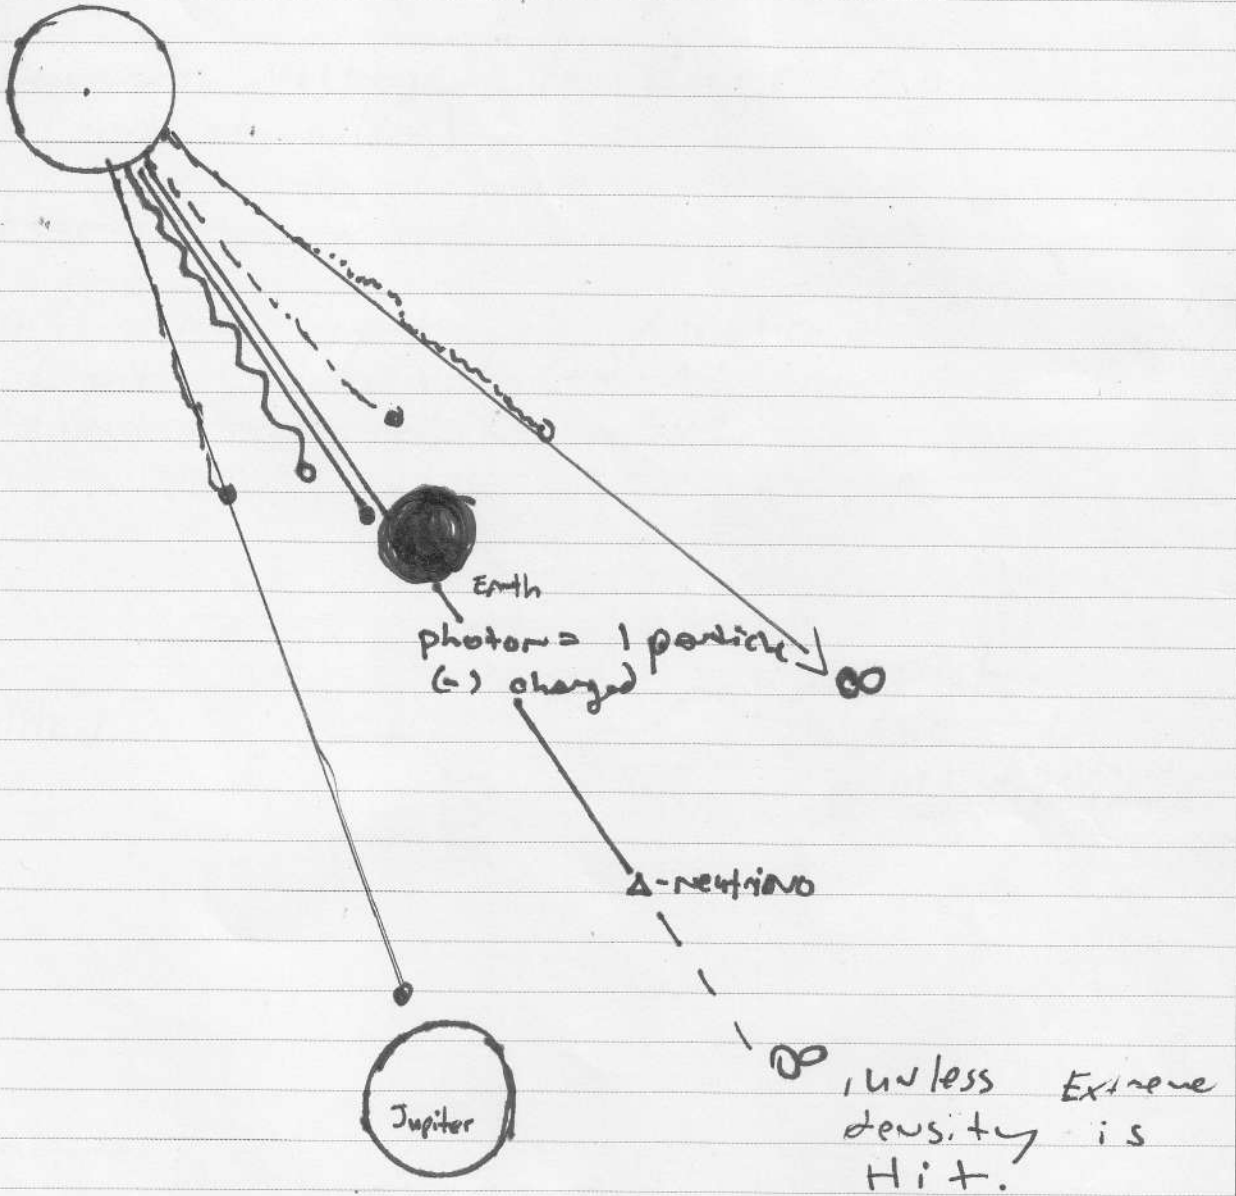 Earth
photon = 1 particle
(-) charged
∞
Δ-neutrino
∞
, unless Extreme
density is
Hit.
Jupiter